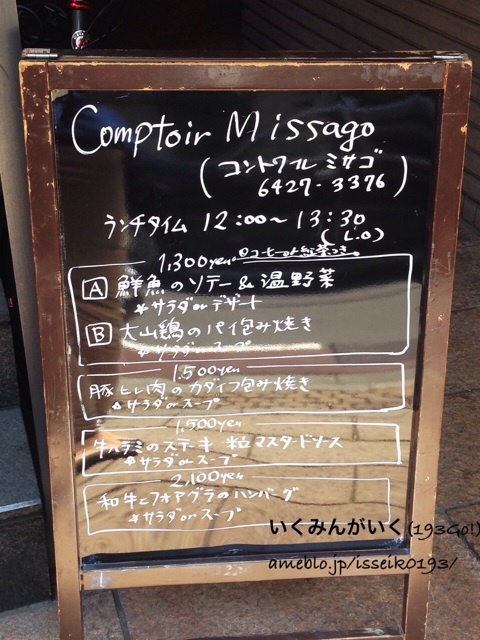 Comptoir Missago
(コントワール ミサゴ
6427-3376)
ランチタイム 12:00〜13:30
(L.O)
1,300yen ロコーヒーor紅茶つき。
A 鮮魚のソテー&温野菜
*サラダorデザート
B 大山鶏のパイ包み焼き
*サラダorスープ
1,500yen
豚ヒレ肉のカダイフ包み焼き
*サラダorスープ
1,500yen
牛ハラミのステーキ 粒マスタードソース
*サラダorスープ
2,100yen
和牛とフォアグラのハンバーグ
*サラダorスープ
いくみんがいく(193Go!)
ameblo.jp/isseiko193/